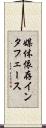 媒体依存イン
タフェース